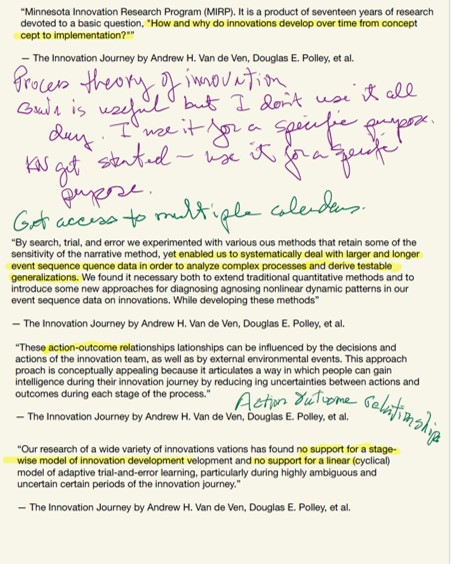 “Minnesota Innovation Research Program (MIRP). It is a product of seventeen years of research
devoted to a basic question, "How and why do innovations develop over time from concept
cept to implementation?"”
— The Innovation Journey by Andrew H. Van de Ven, Douglas E. Polley, et al.
Process theory of innovation
is useful but I don't use it all
day. I use it for a specific purpose.
KN get started – use it for a specific
purpose.
Get access to multiple calendars.
“By search, trial, and error we experimented with various ous methods that retain some of the
sensitivity of the narrative method, yet enabled us to systematically deal with larger and longer
event sequence quence data in order to analyze complex processes and derive testable
generalizations. We found it necessary both to extend traditional quantitative methods and to
introduce some new approaches for diagnosing agnosing nonlinear dynamic patterns in our
event sequence data on innovations. While developing these methods”
— The Innovation Journey by Andrew H. Van de Ven, Douglas E. Polley, et al.
“These action-outcome relationships lationships can be influenced by the decisions and
actions of the innovation team, as well as by external environmental events. This approach
proach is conceptually appealing because it articulates a way in which people can gain
intelligence during their innovation journey by reducing ing uncertainties between actions and
outcomes during each stage of the process.”
Action Outcome Relationship
— The Innovation Journey by Andrew H. Van de Ven, Douglas E. Polley, et al.
“Our research of a wide variety of innovations vations has found no support for a stage-
wise model of innovation development velopment and no support for a linear (cyclical)
model of adaptive trial-and-error learning, particularly during highly ambiguous and
uncertain certain periods of the innovation journey.”
— The Innovation Journey by Andrew H. Van de Ven, Douglas E. Polley, et al.